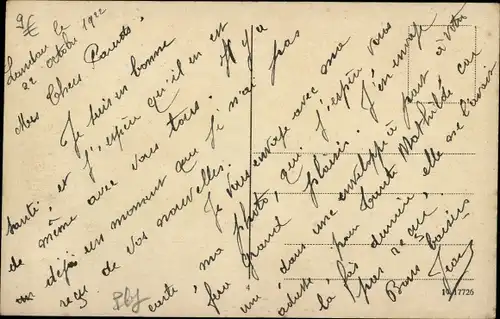 Landau le
22 octobre 1922
Mes Chers Parents,
Je suis en bonne
santé, et j'espère qu'il en est
de même avec vous tous. Il y a
déjà un moment que je n'ai pas
reçu de vos nouvelles.
Je vous envoie avec ma
carte, ma photo, qui j'espère vous
fera grand plaisir. J'en envoie
une dans une enveloppe à part à votre
adresse pour tante Mathilde car
la fois dernière, elle ne l'avait
pas reçu.
Bons baisers
Jean
17726